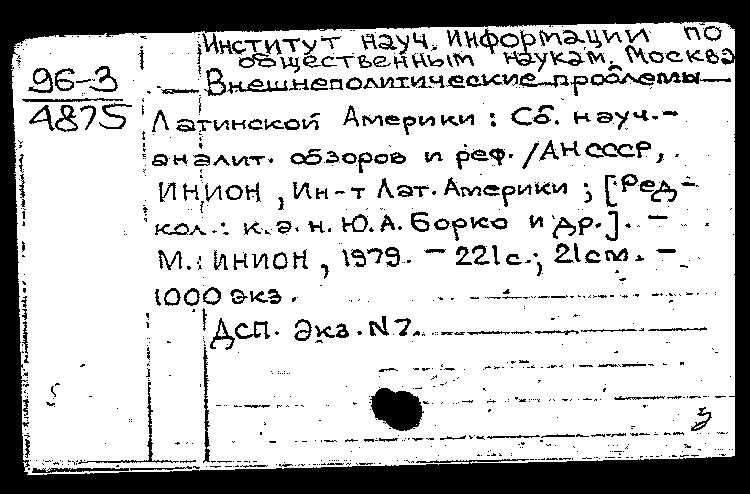 Институт науч. информации по
общественным наукам. Москва
96-3
Внешнеполитические проблемы
4875
Латинской Америки : Сб. науч.-
аналит. обзоров и реф. / АН СССР,
ИНИОН, Ин-т Лат. Америки ; [Ред-
кол.: к.э.н. Ю.А. Борко и др.]. —
М.: ИНИОН, 1979. — 221 с.; 21 см. —
1000 экз.
ДСП. Экз. N7.